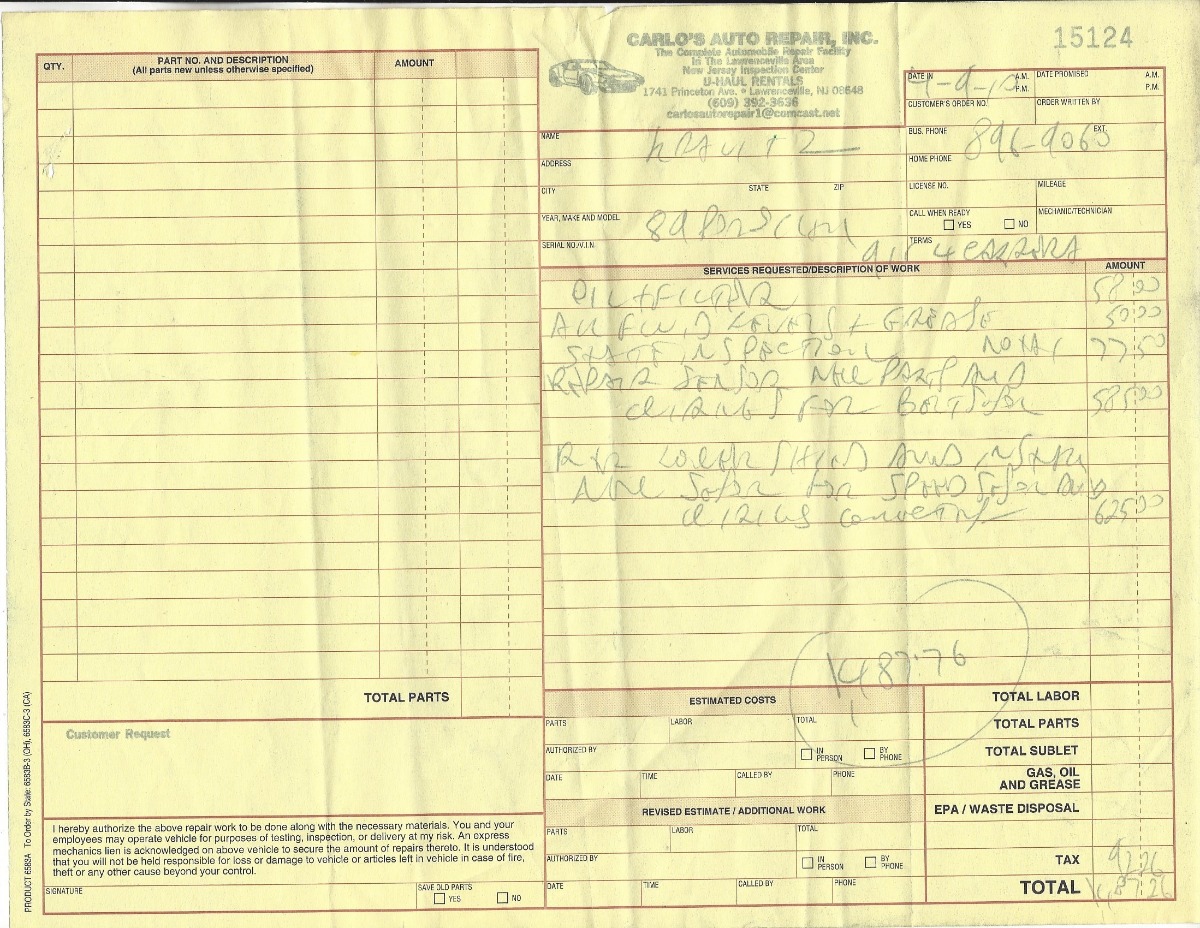 CARLO'S AUTO REPAIR, INC.
The Complete Automobile Repair Facility
In The Lawrenceville Area
New Jersey Inspection Center
U-HAUL RENTALS
1741 Princeton Ave. • Lawrenceville, NJ 08648
(609) 392-3636
carlosautorepair1@comcast.net
15124
QTY.
PART NO. AND DESCRIPTION
(All parts new unless otherwise specified)
AMOUNT
DATE IN
A.M.
P.M.
DATE PROMISED
A.M.
P.M.
CUSTOMER'S ORDER NO.
ORDER WRITTEN BY
NAME
BUS. PHONE 896-9063
EXT.
ADDRESS
HOME PHONE
CITY STATE ZIP
LICENSE NO.
MILEAGE
YEAR, MAKE AND MODEL 89
CALL WHEN READY
YES NO
MECHANIC/TECHNICIAN
SERIAL NO./V.I.N.
TERMS
911 4 CARRERA
SERVICES REQUESTED/DESCRIPTION OF WORK AMOUNT
OIL + FILTER 58.00
FLUID LEVELS + GREASE 50.00
STATE INSPECTION 77.50
REPAIR SENSOR NEW PARTS AND
FOR 585.00
R+R LOWER AND
NEW FOR SPEED
625.00
1487.76
TOTAL PARTS
Customer Request
I hereby authorize the above repair work to be done along with the necessary materials. You and your
employees may operate vehicle for purposes of testing, inspection, or delivery at my risk. An express
mechanics lien is acknowledged on above vehicle to secure the amount of repairs thereto. It is understood
that you will not be held responsible for loss or damage to vehicle or articles left in vehicle in case of fire,
theft or any other cause beyond your control.
SIGNATURE
SAVE OLD PARTS
YES NO
ESTIMATED COSTS
PARTS LABOR TOTAL
AUTHORIZED BY
IN PERSON BY PHONE
DATE TIME CALLED BY PHONE
REVISED ESTIMATE / ADDITIONAL WORK
PARTS LABOR TOTAL
AUTHORIZED BY
IN PERSON BY PHONE
DATE TIME CALLED BY PHONE
TOTAL LABOR
TOTAL PARTS
TOTAL SUBLET
GAS, OIL
AND GREASE
EPA / WASTE DISPOSAL
TAX 92.26
TOTAL
PRODUCT 6583A To Order by State: 6583B-3 (OH), 6583C-3 (CA)